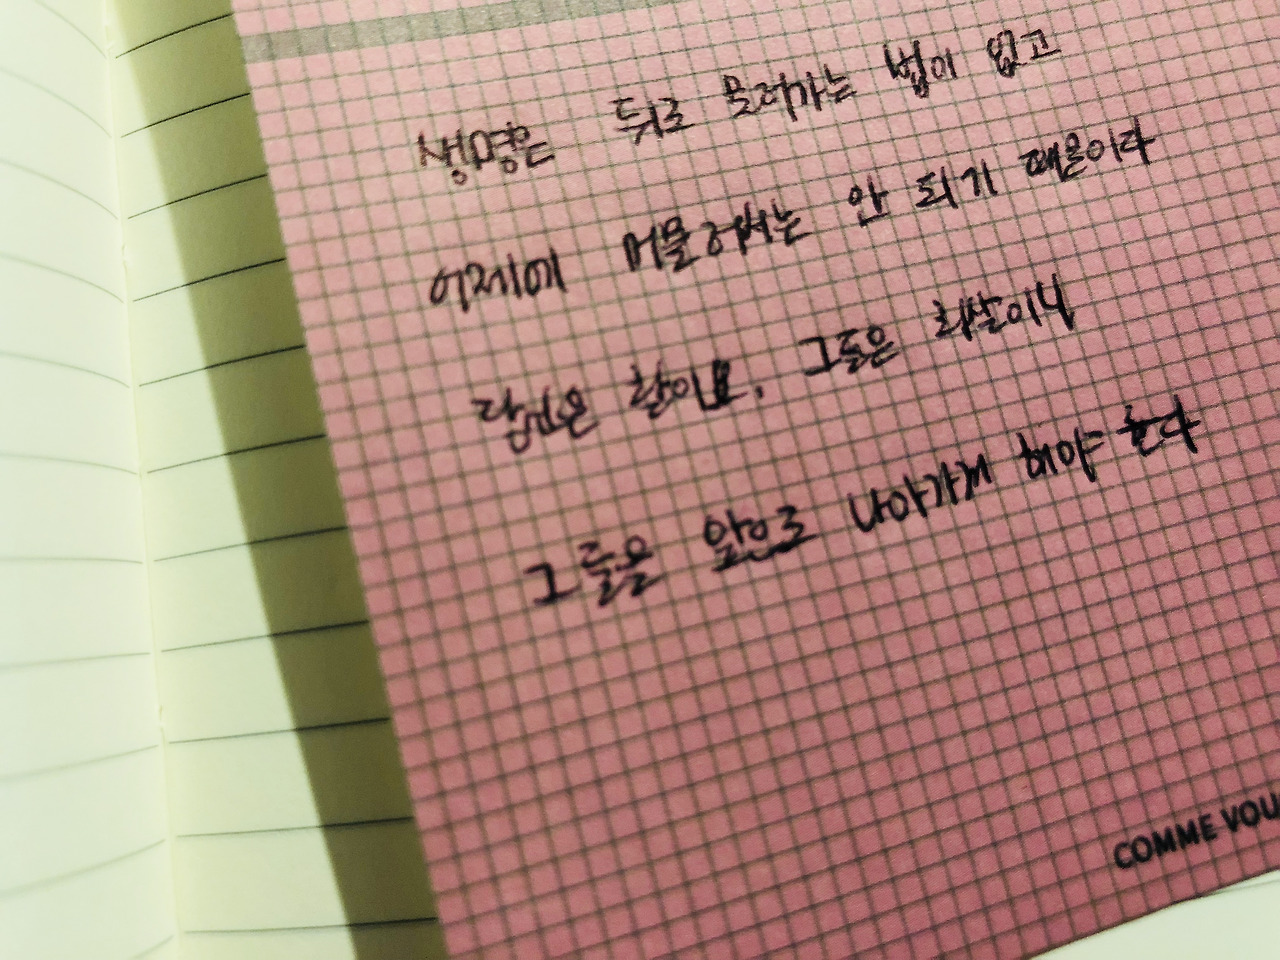 생명은 뒤로 물러가는 법이 없고
어제에 머물러서는 안 되기 때문이다
당신은 활이요, 그들은 화살이니
그들을 앞으로 나아가게 해야 한다
COMME VOU